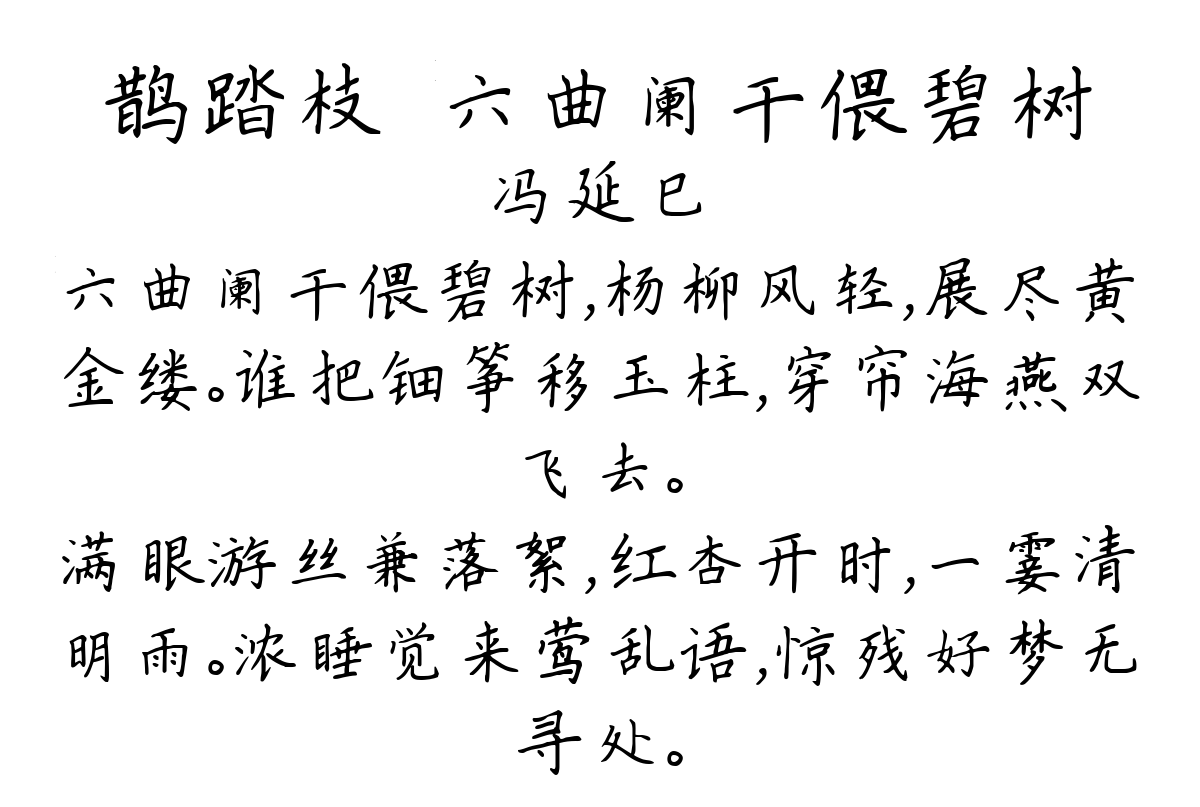 鹊踏枝 六曲阑干偎碧树
冯延巳
六曲阑干偎碧树,杨柳风轻,展尽黄
金缕。谁把钿筝移玉柱,穿帘海燕双
飞去。
满眼游丝兼落絮,红杏开时,一霎清
明雨。浓睡觉来莺乱语,惊残好梦无
寻处。